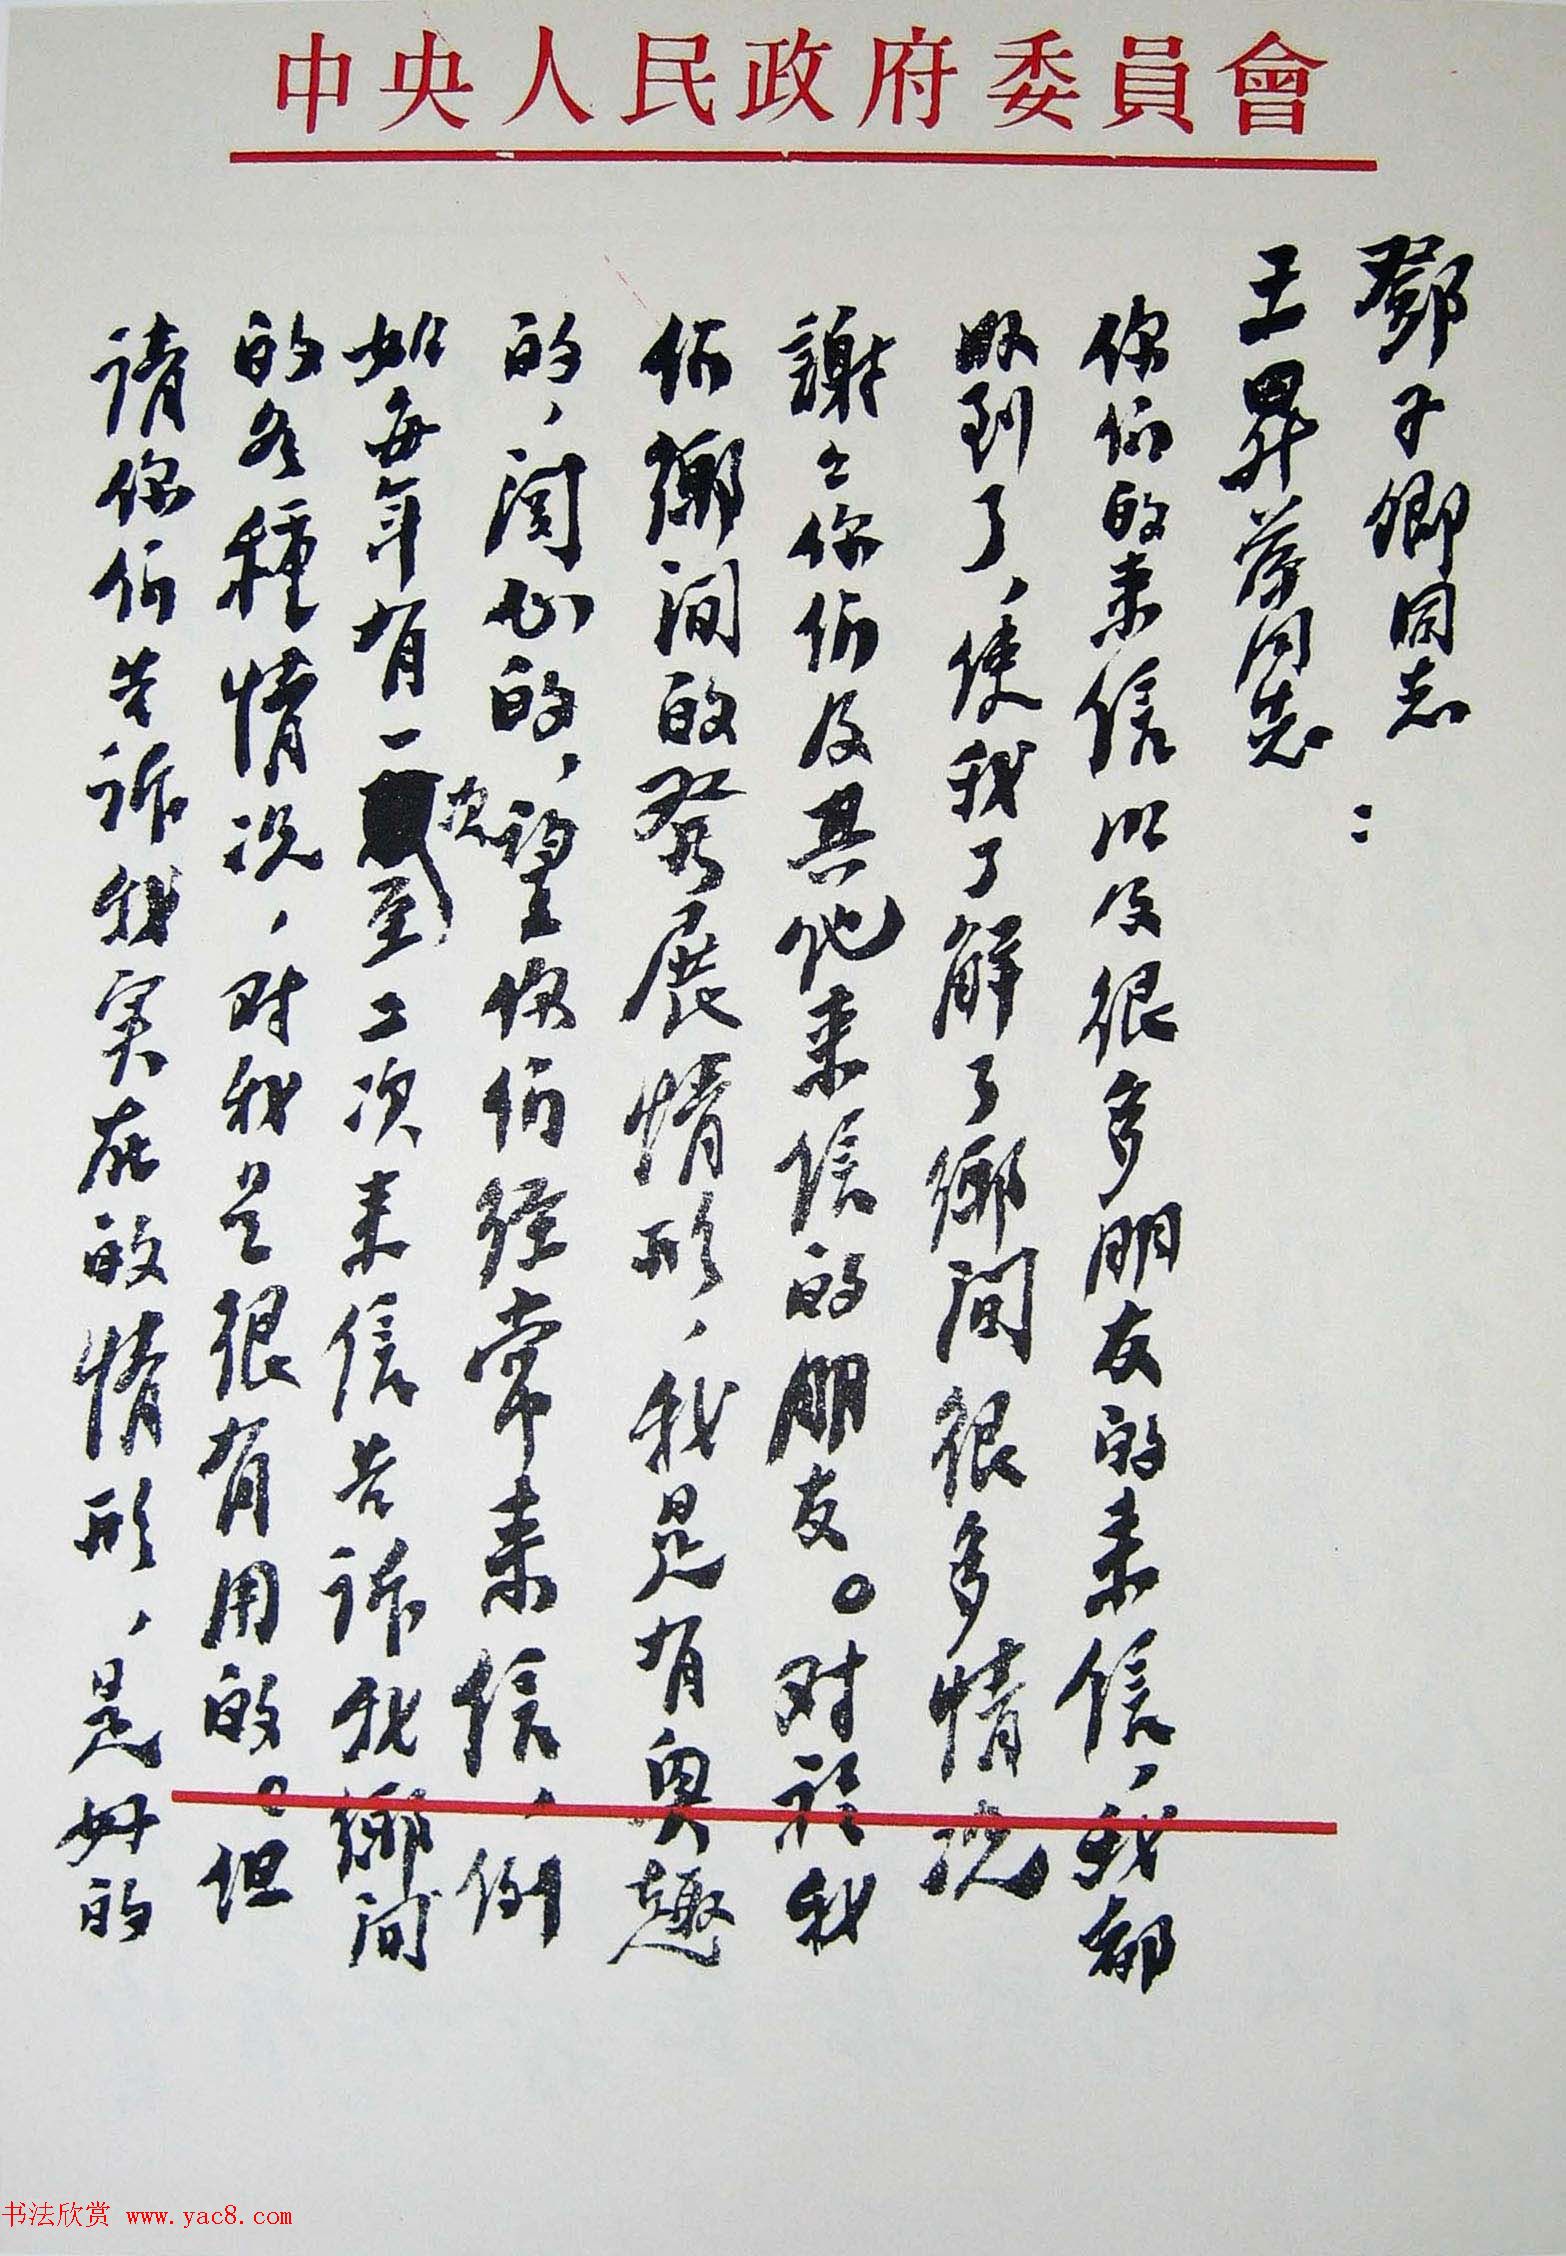 中央人民政府委員會
鄧子卿同志
王昇蓉同志：
你们的来信以及很多朋友的来信，我都
收到了，使我了解了鄉间很多情况
謝々你们及其他来信的朋友。对於我
们鄉间的發展情形，我是有兴趣
的，関心的，望你们经常来信，例
如每年有一次至二次来信告诉我鄉间
的各種情况，对我是很有用的。但
请你们告诉我实在的情形，是好的
书法欣赏 www.yac8.com